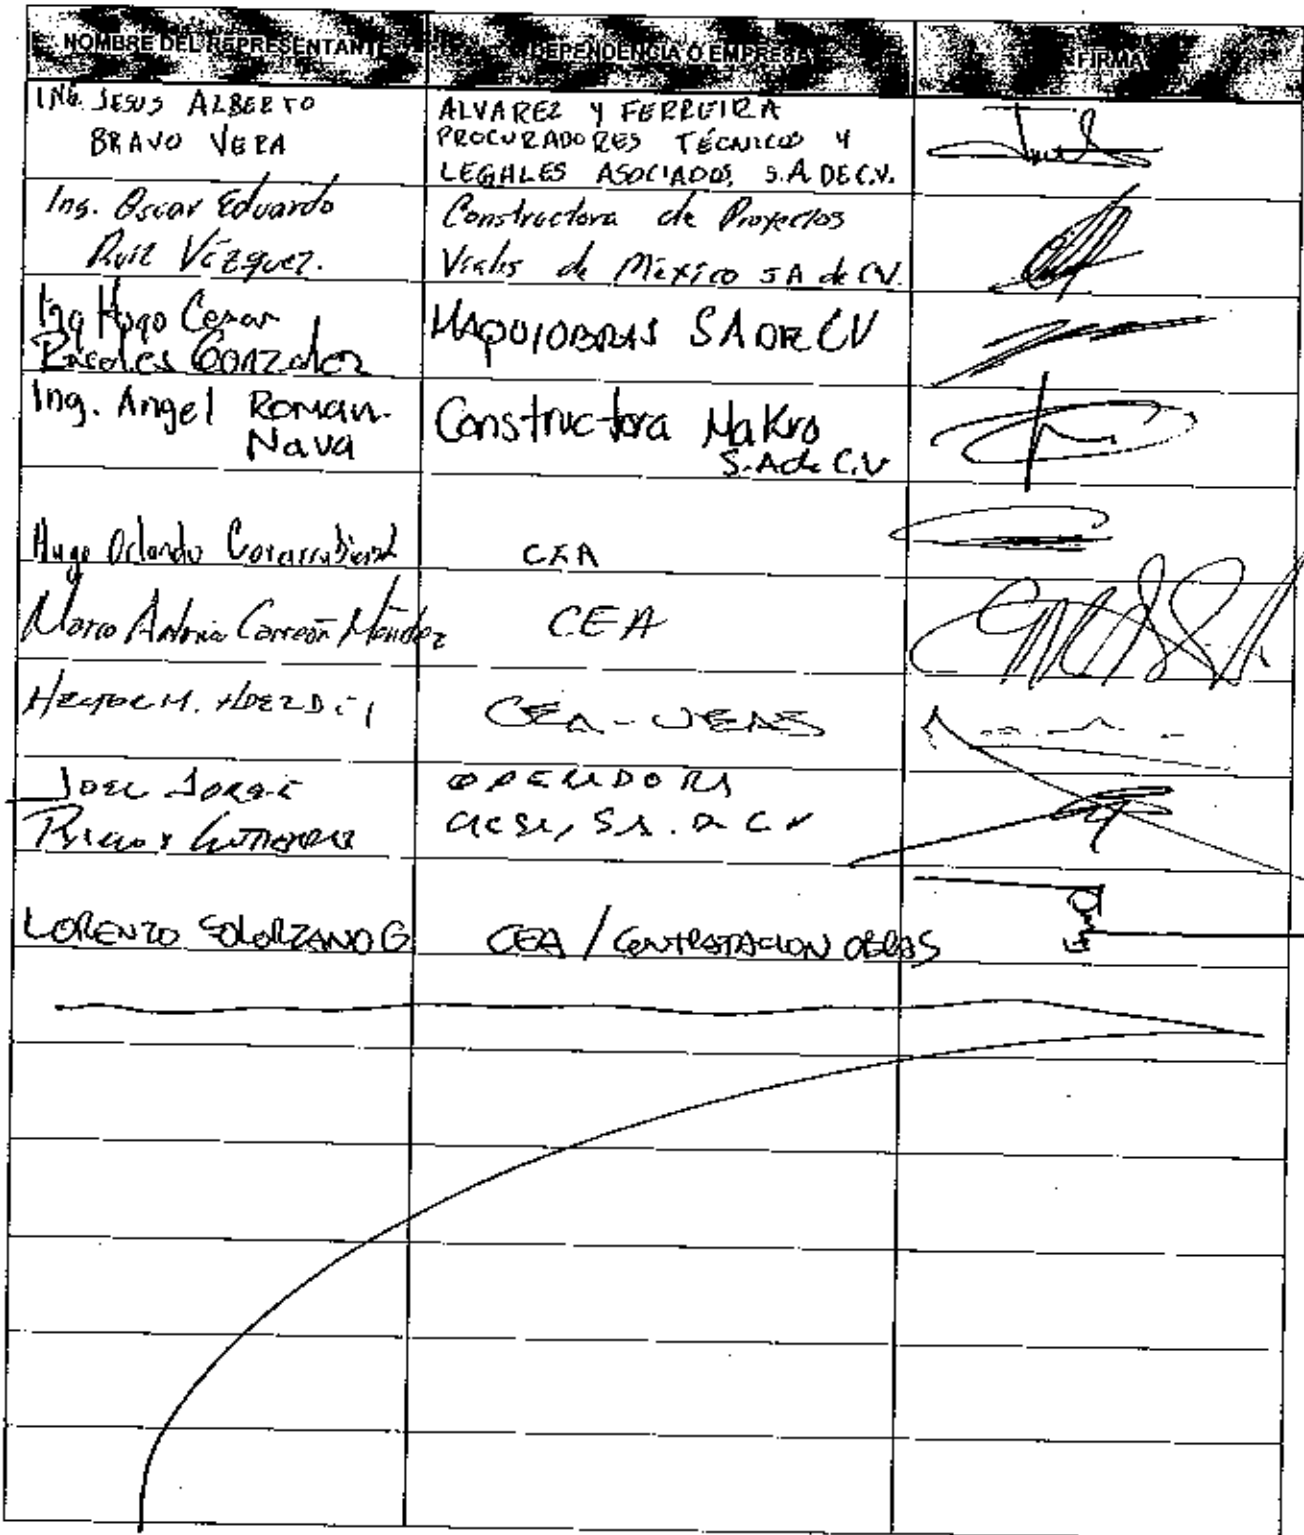 NOMBRE DEL REPRESENTANTE
DEPENDENCIA O EMPRESA
FIRMA
ING. JESUS ALBERTO
BRAVO VERA
ALVAREZ Y FERREIRA
PROCURADORES TÉCNICOS Y
LEGALES ASOCIADOS, S.A. DE C.V.
Ing. Oscar Eduardo
Ruiz Vázquez.
Constructora de Proyectos
Viales de México SA de CV.
Ing Hugo Cesar
Gonzalez
MAQUIOBRAS SA DE CV
Ing. Angel Roman
Nava
Constructora Makro
S.A de C.V
Hugo Orlando
CEA
Marco Antonio Carreón Méndez
CEA
HECTOR M.
CEA -
JOEL JORGE
GUTIERREZ
OPERADORA
S.A. DE C.V
LORENZO SOLORZANO G
CEA / CONTRATACION OBRAS